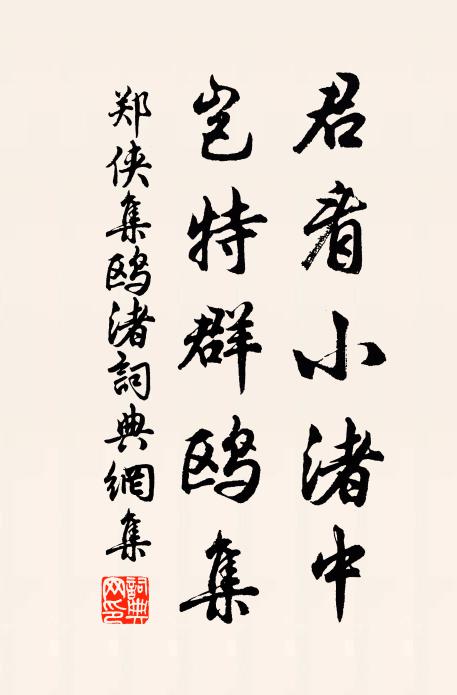 君看小渚中
岂特群鸥集
郑侠集鸥渚詞典網集
詞典
网印